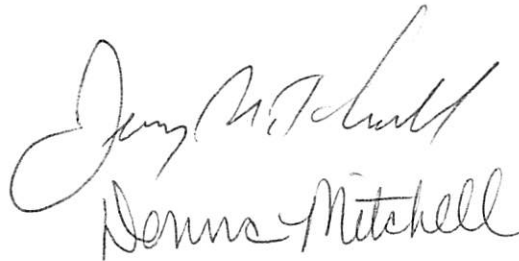 Jerry Mitchell
Donna Mitchell